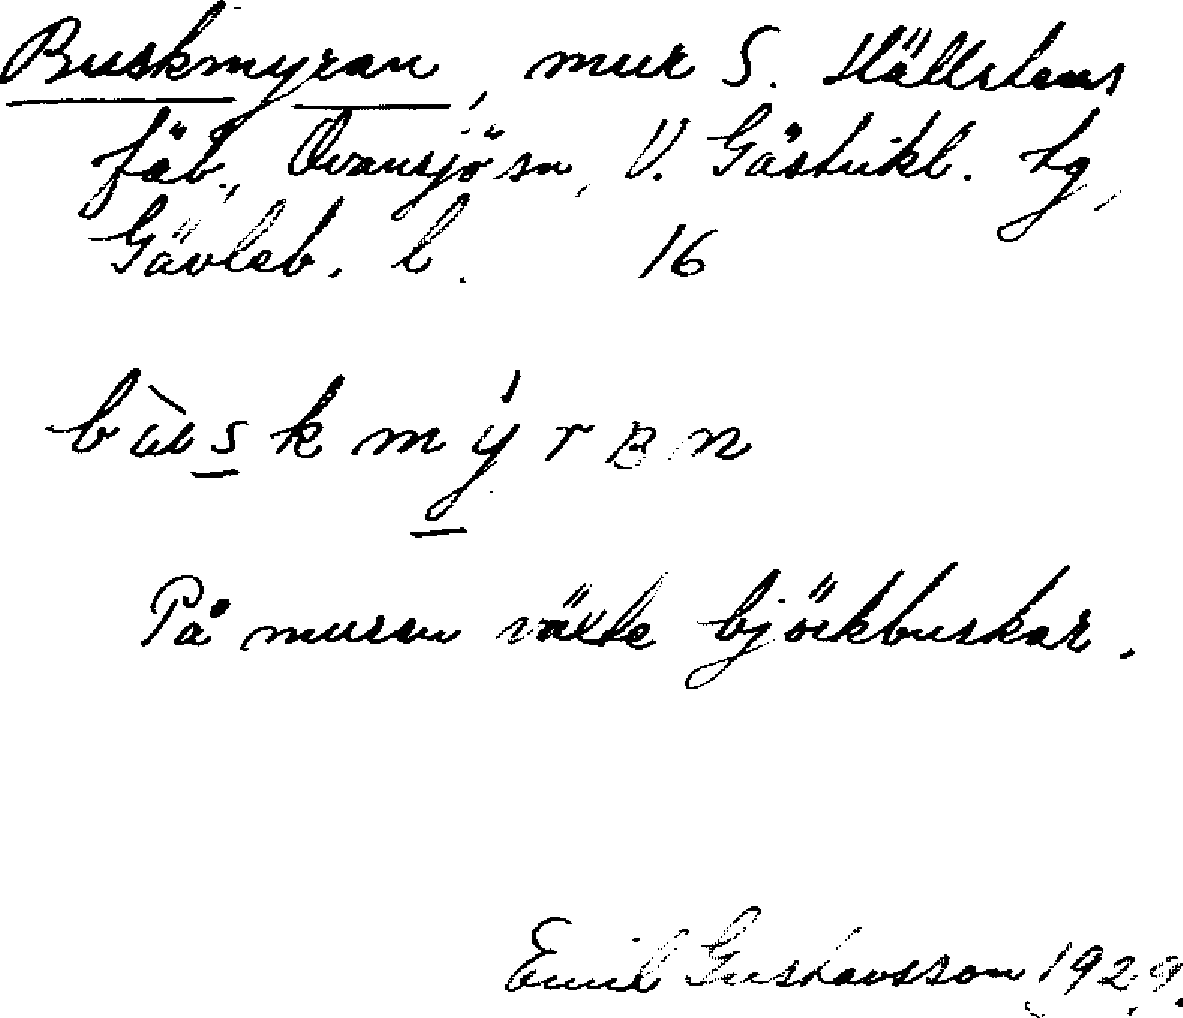 Buskmyran, mur S. Hällstens
fäb., Ovansjö sn, V. Gästrikl. tg,
Gävleb. l. 16
bùskmýrɐn
På muren växte björkbuskar.
Emil Gustavsson 1929.